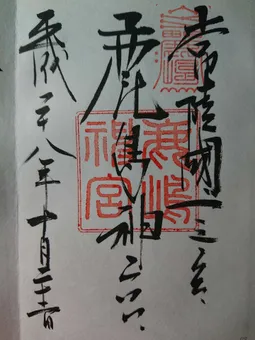 常陸國一之宮
鹿島神宮
平成二十八年十月
鹿嶋
神宮